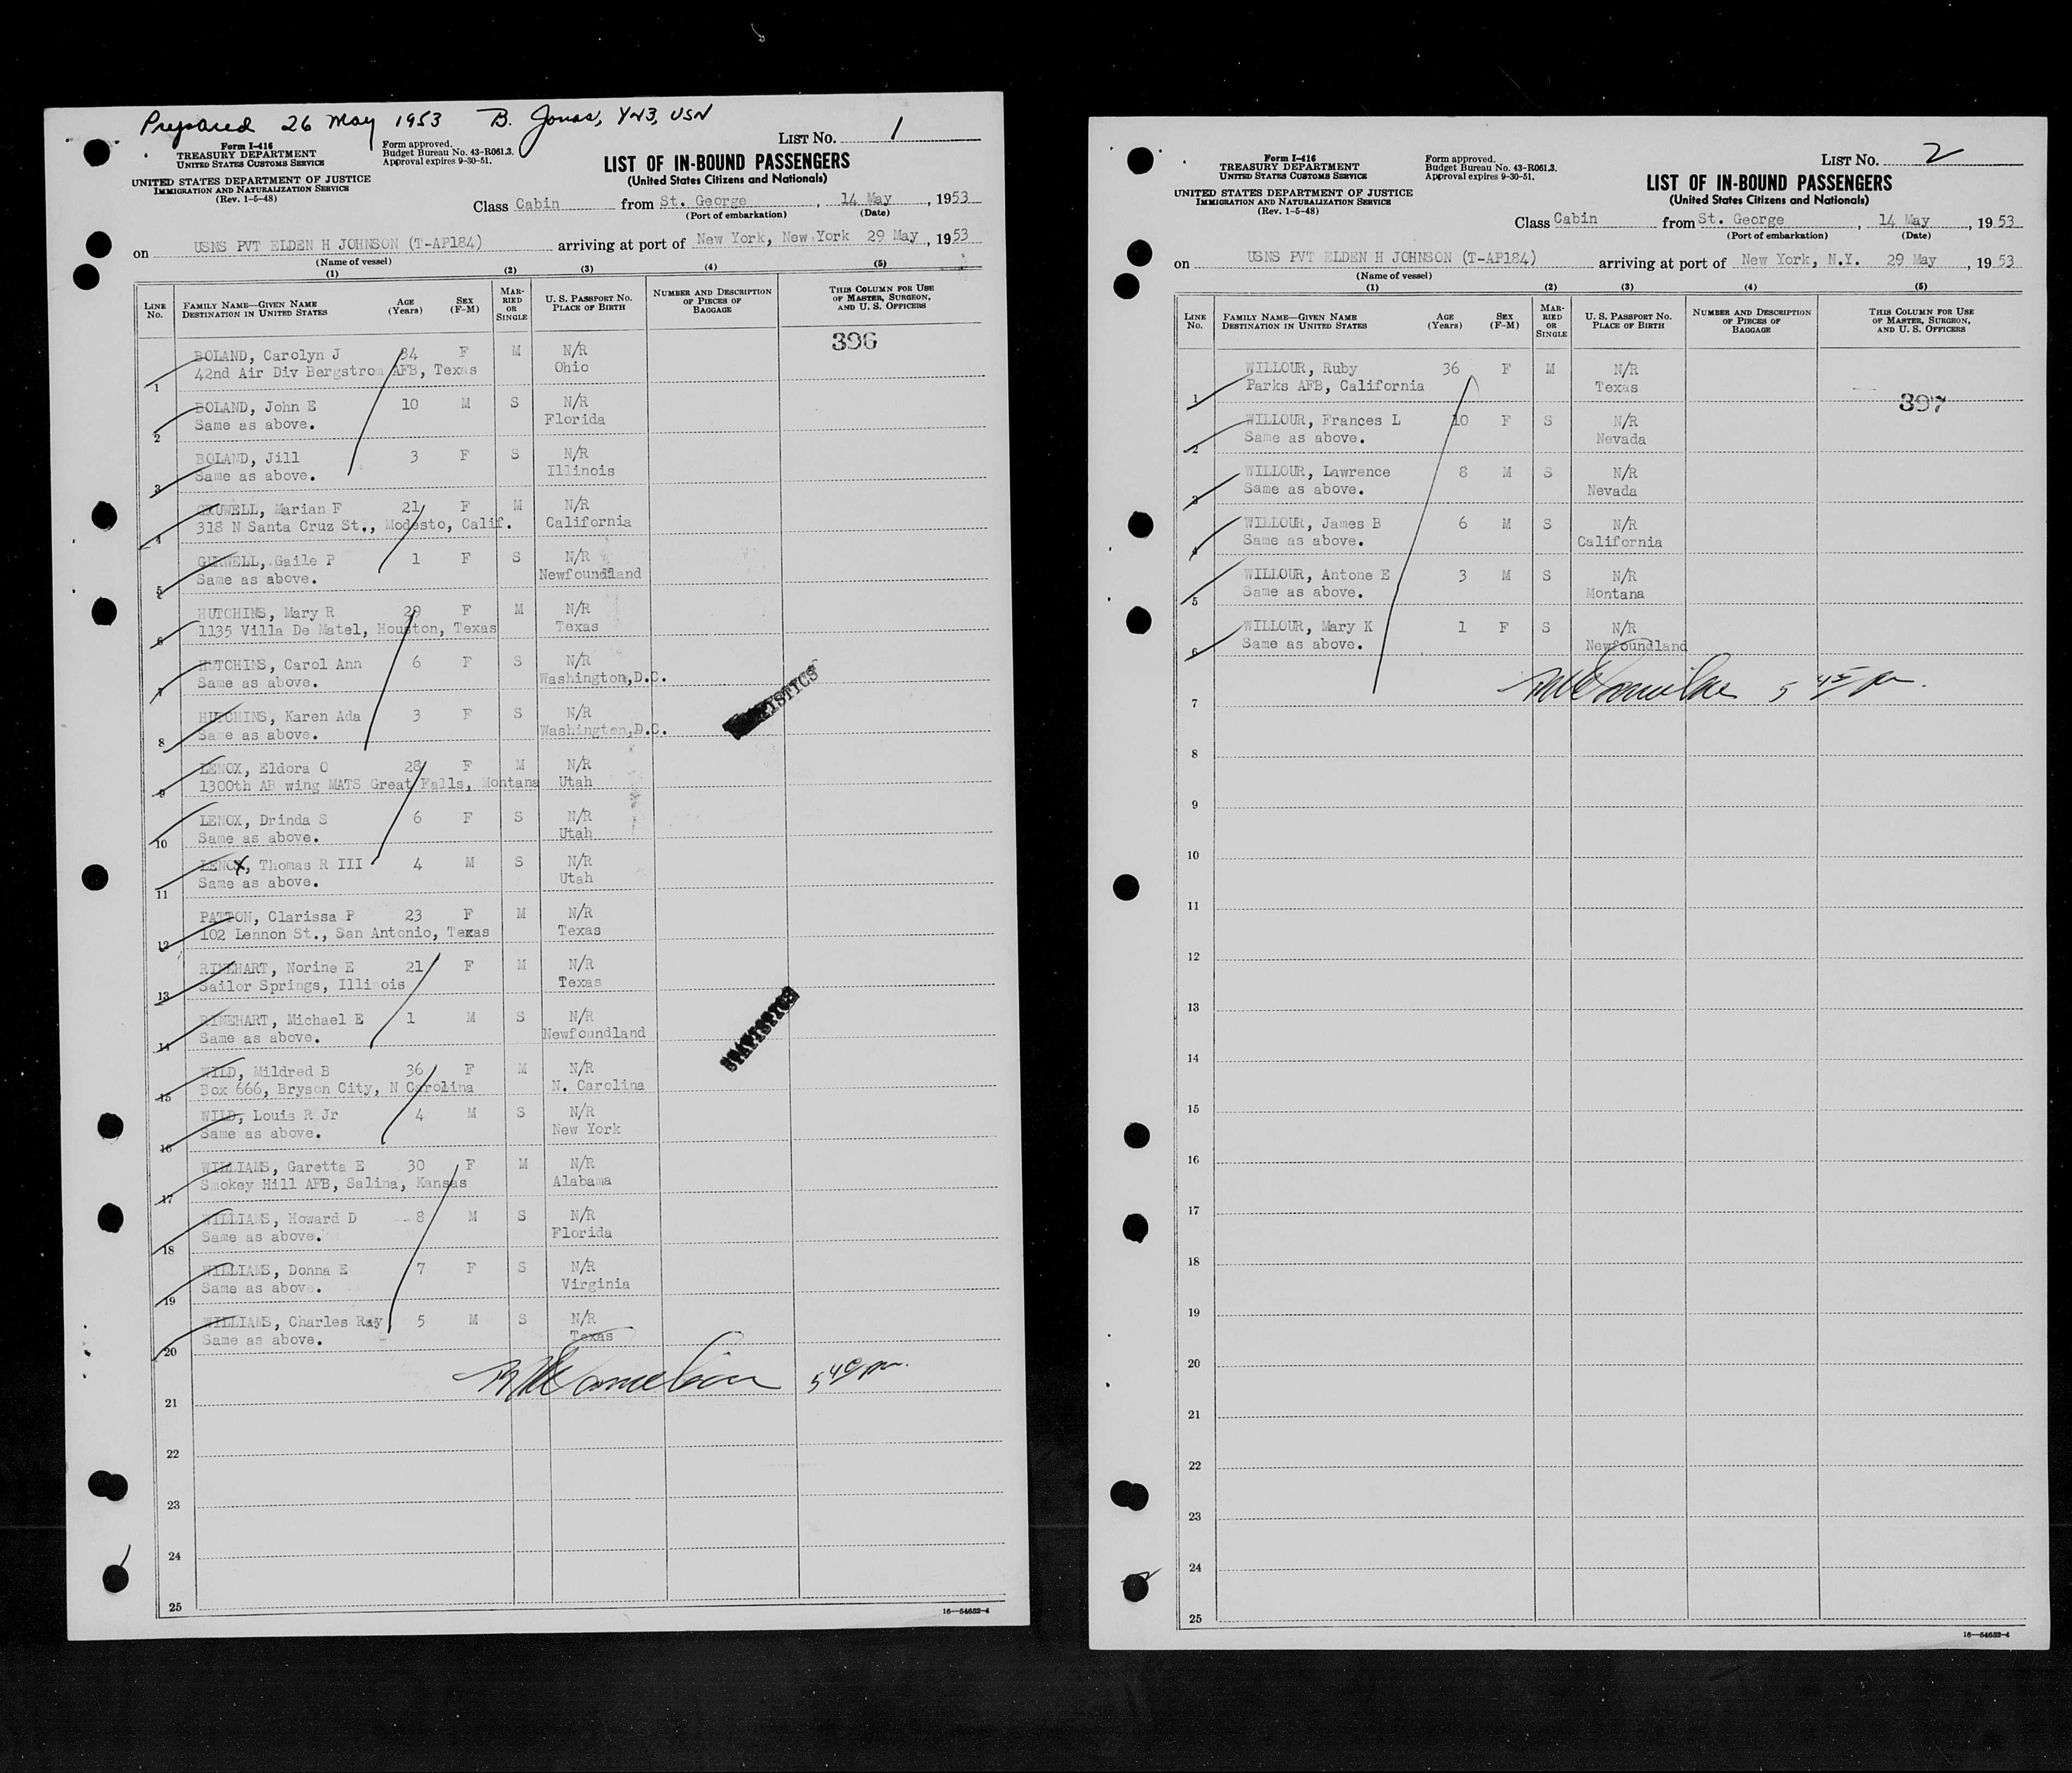 Prepared 26 May 1953 B. Jonas, YN3, USN
Form I-416
TREASURY DEPARTMENT
UNITED STATES CUSTOMS SERVICE
UNITED STATES DEPARTMENT OF JUSTICE
IMMIGRATION AND NATURALIZATION SERVICE
(Rev. 1-5-48)
Form approved.
Budget Bureau No. 43-R061.3.
Approval expires 9-30-51.
LIST No. 1
LIST OF IN-BOUND PASSENGERS
(United States Citizens and Nationals)
Class Cabin from St. George, 14 May, 1953
(Port of embarkation) (Date)
on USNS PVT ELDEN H JOHNSON (T-AP184) arriving at port of New York, New York 29 May, 1953
(Name of vessel)
(1) (2) (3) (4) (5)
LINE No. FAMILY NAME—GIVEN NAME DESTINATION IN UNITED STATES AGE (Years) SEX (F-M) MARRIED OR SINGLE U. S. PASSPORT No. PLACE OF BIRTH NUMBER AND DESCRIPTION OF PIECES OF BAGGAGE THIS COLUMN FOR USE OF MASTER, SURGEON, AND U. S. OFFICERS
396
1 BOLAND, Carolyn J 34 F M N/R
42nd Air Div Bergstrom AFB, Texas Ohio
2 BOLAND, John E 10 M S N/R
Same as above. Florida
3 BOLAND, Jill 3 F S N/R
Same as above. Illinois
4 Marian F 21 F M N/R
318 N Santa Cruz St., Modesto, Calif. California
5 Gaile P 1 F S N/R
Same as above. Newfoundland
6 HUTCHINS, Mary R 29 F M N/R
1135 Villa De Matel, Houston, Texas Texas
7 HUTCHINS, Carol Ann 6 F S N/R
Same as above. Washington,D.C.
8 HUTCHINS, Karen Ada 3 F S N/R
Same as above. Washington,D.C.
9 LENOX, Eldora O 28 F M N/R
1300th AB wing MATS Great Falls, Montana Utah
10 LENOX, Drinda S 6 F S N/R
Same as above. Utah
11 LENOX, Thomas R III 4 M S N/R
Same as above. Utah
12 PATTON, Clarissa P 23 F M N/R
102 Lennon St., San Antonio, Texas Texas
13 RINEHART, Norine E 21 F M N/R
Sailor Springs, Illinois Texas
14 RINEHART, Michael E 1 M S N/R
Same as above. Newfoundland
15 WILD, Mildred B 36 F M N/R
Box 666, Bryson City, N Carolina N. Carolina
16 WILD, Louis R Jr 4 M S N/R
Same as above. New York
17 WILLIAMS, Garetta E 30 F M N/R
Smokey Hill AFB, Salina, Kansas Alabama
18 WILLIAMS, Howard D 8 M S N/R
Same as above. Florida
19 WILLIAMS, Donna E 7 F S N/R
Same as above. Virginia
20 WILLIAMS, Charles Ray 5 M S N/R
Same as above. Texas
STATISTICS
STATISTICS
5 40 pm.
21
22
23
24
25
16—54652-4
Form I-416
TREASURY DEPARTMENT
UNITED STATES CUSTOMS SERVICE
UNITED STATES DEPARTMENT OF JUSTICE
IMMIGRATION AND NATURALIZATION SERVICE
(Rev. 1-5-48)
Form approved.
Budget Bureau No. 43-R061.3.
Approval expires 9-30-51.
LIST No. 2
LIST OF IN-BOUND PASSENGERS
(United States Citizens and Nationals)
Class Cabin from St. George, 14 May, 1953
(Port of embarkation) (Date)
on USNS PVT ELDEN H JOHNSON (T-AP184) arriving at port of New York, N.Y. 29 May, 1953
(Name of vessel)
(1) (2) (3) (4) (5)
LINE No. FAMILY NAME—GIVEN NAME DESTINATION IN UNITED STATES AGE (Years) SEX (F-M) MARRIED OR SINGLE U. S. PASSPORT No. PLACE OF BIRTH NUMBER AND DESCRIPTION OF PIECES OF BAGGAGE THIS COLUMN FOR USE OF MASTER, SURGEON, AND U. S. OFFICERS
1 WILLOUR, Ruby 36 F M N/R
Parks AFB, California Texas
397
2 WILLOUR, Frances L 10 F S N/R
Same as above. Nevada
3 WILLOUR, Lawrence 8 M S N/R
Same as above. Nevada
4 WILLOUR, James B 6 M S N/R
Same as above. California
5 WILLOUR, Antone E 3 M S N/R
Same as above. Montana
6 WILLOUR, Mary K 1 F S N/R
Same as above. Newfoundland
5 45 pm.
7
8
9
10
11
12
13
14
15
16
17
18
19
20
21
22
23
24
25
16—54652-4